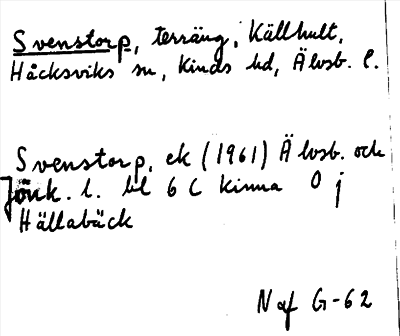 Svenstorp, terräng, Källhult,
Håcksviks sn, Kinds hd, Älvsb. l.
Svenstorp, ek (1961) Älvsb. och
Jönk. l. bl 6 C Kinna 0 j
Hällabäck
Naf G-62